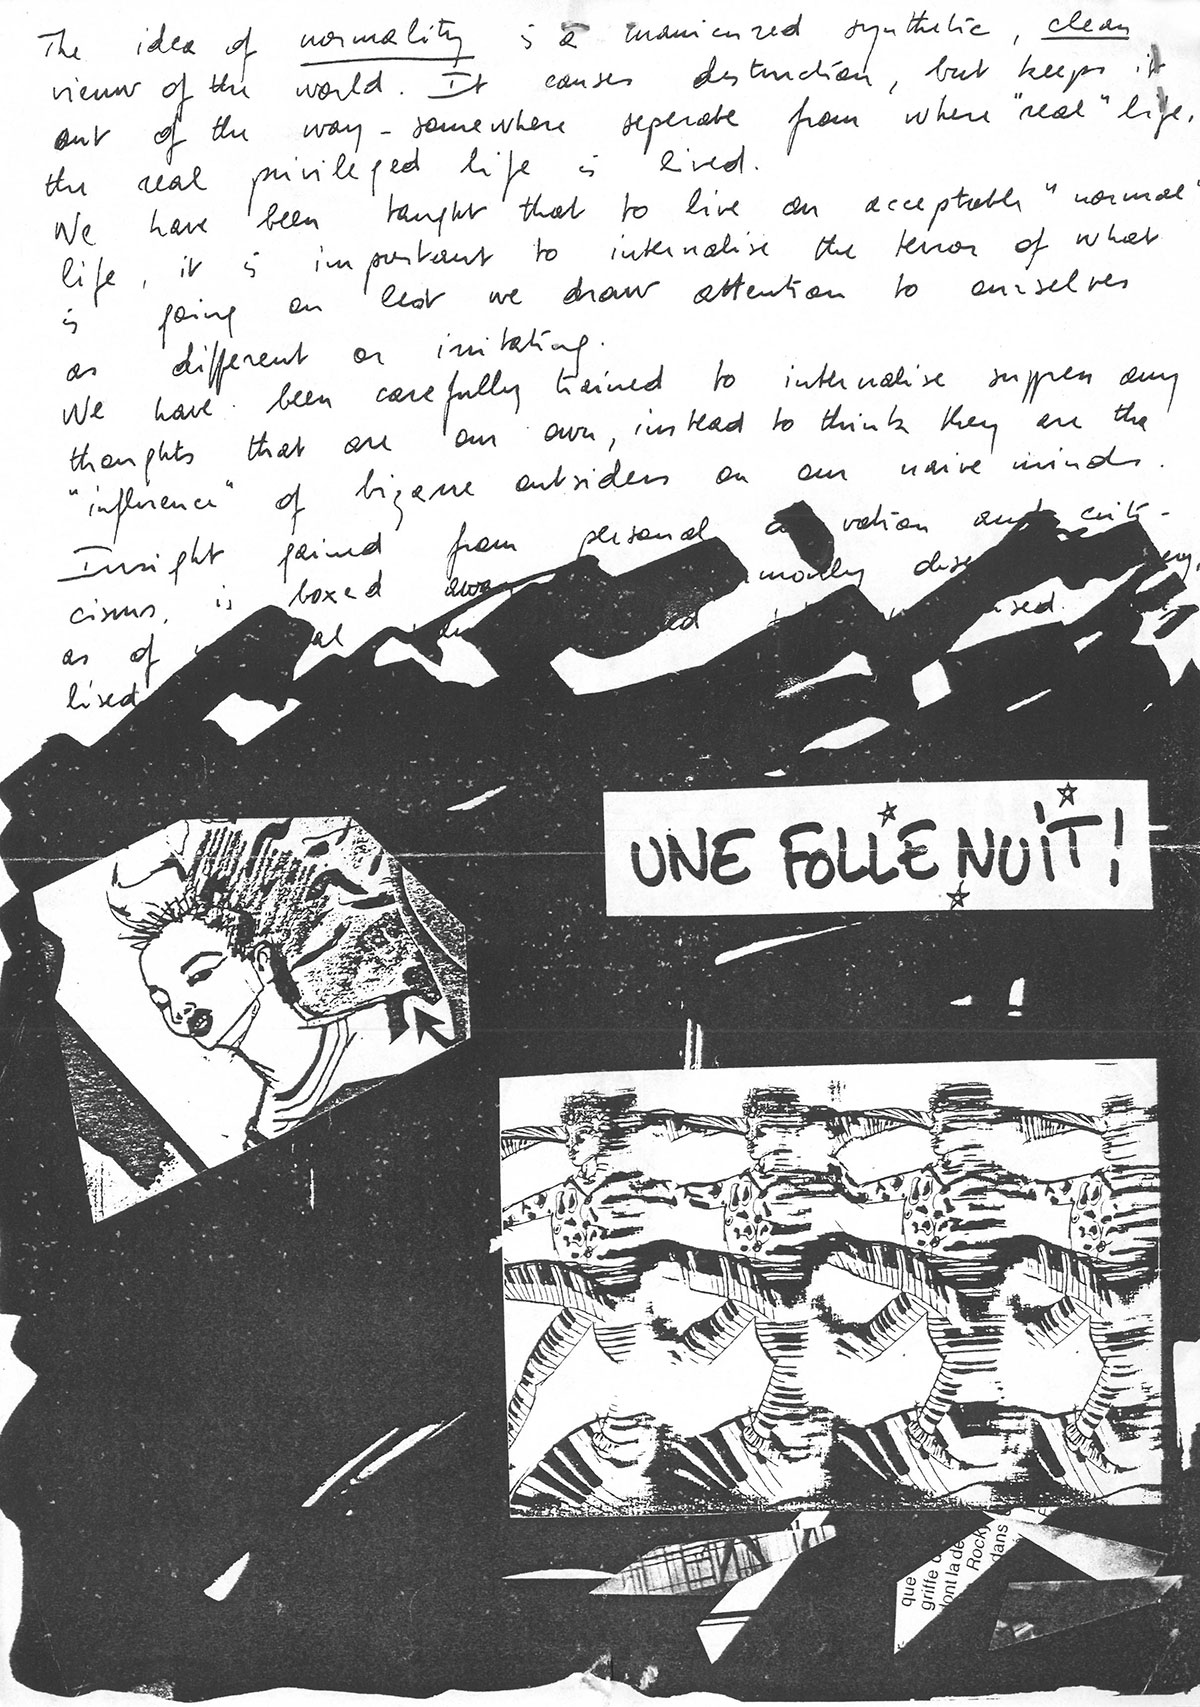 The idea of normality is a manicured synthetic, clean
view of the world. It causes destruction, but keeps it
out of the way - somewhere seperate from where "real" life,
the real privileged life is lived.
We have been taught that to live an acceptable "normal"
life, it is important to internalise the terror of what
is going on lest we draw attention to ourselves
as different or irritating.
We have been carefully trained to internalise suppress any
thoughts that are our own, instead to think they are the
"influence" of bizarre outsiders on our naive minds.
Insight gained from personal vation and criti-
cisms, is boxed away
as of
lised
UNE FOLLE NUIT!
que
griffe
dont la de
Rocky
dans